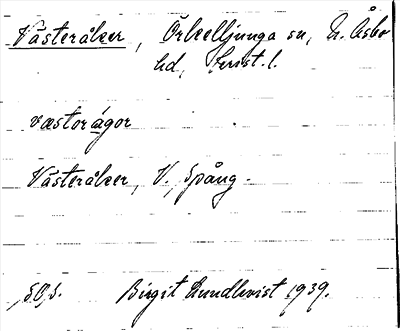 Västeråker, Örkelljunga sn, N. Åsbo
hd, Krist. l.
væstorågor
Västeråker, V. Spång.
S.O.S. Birgit Lundkvist 1939.